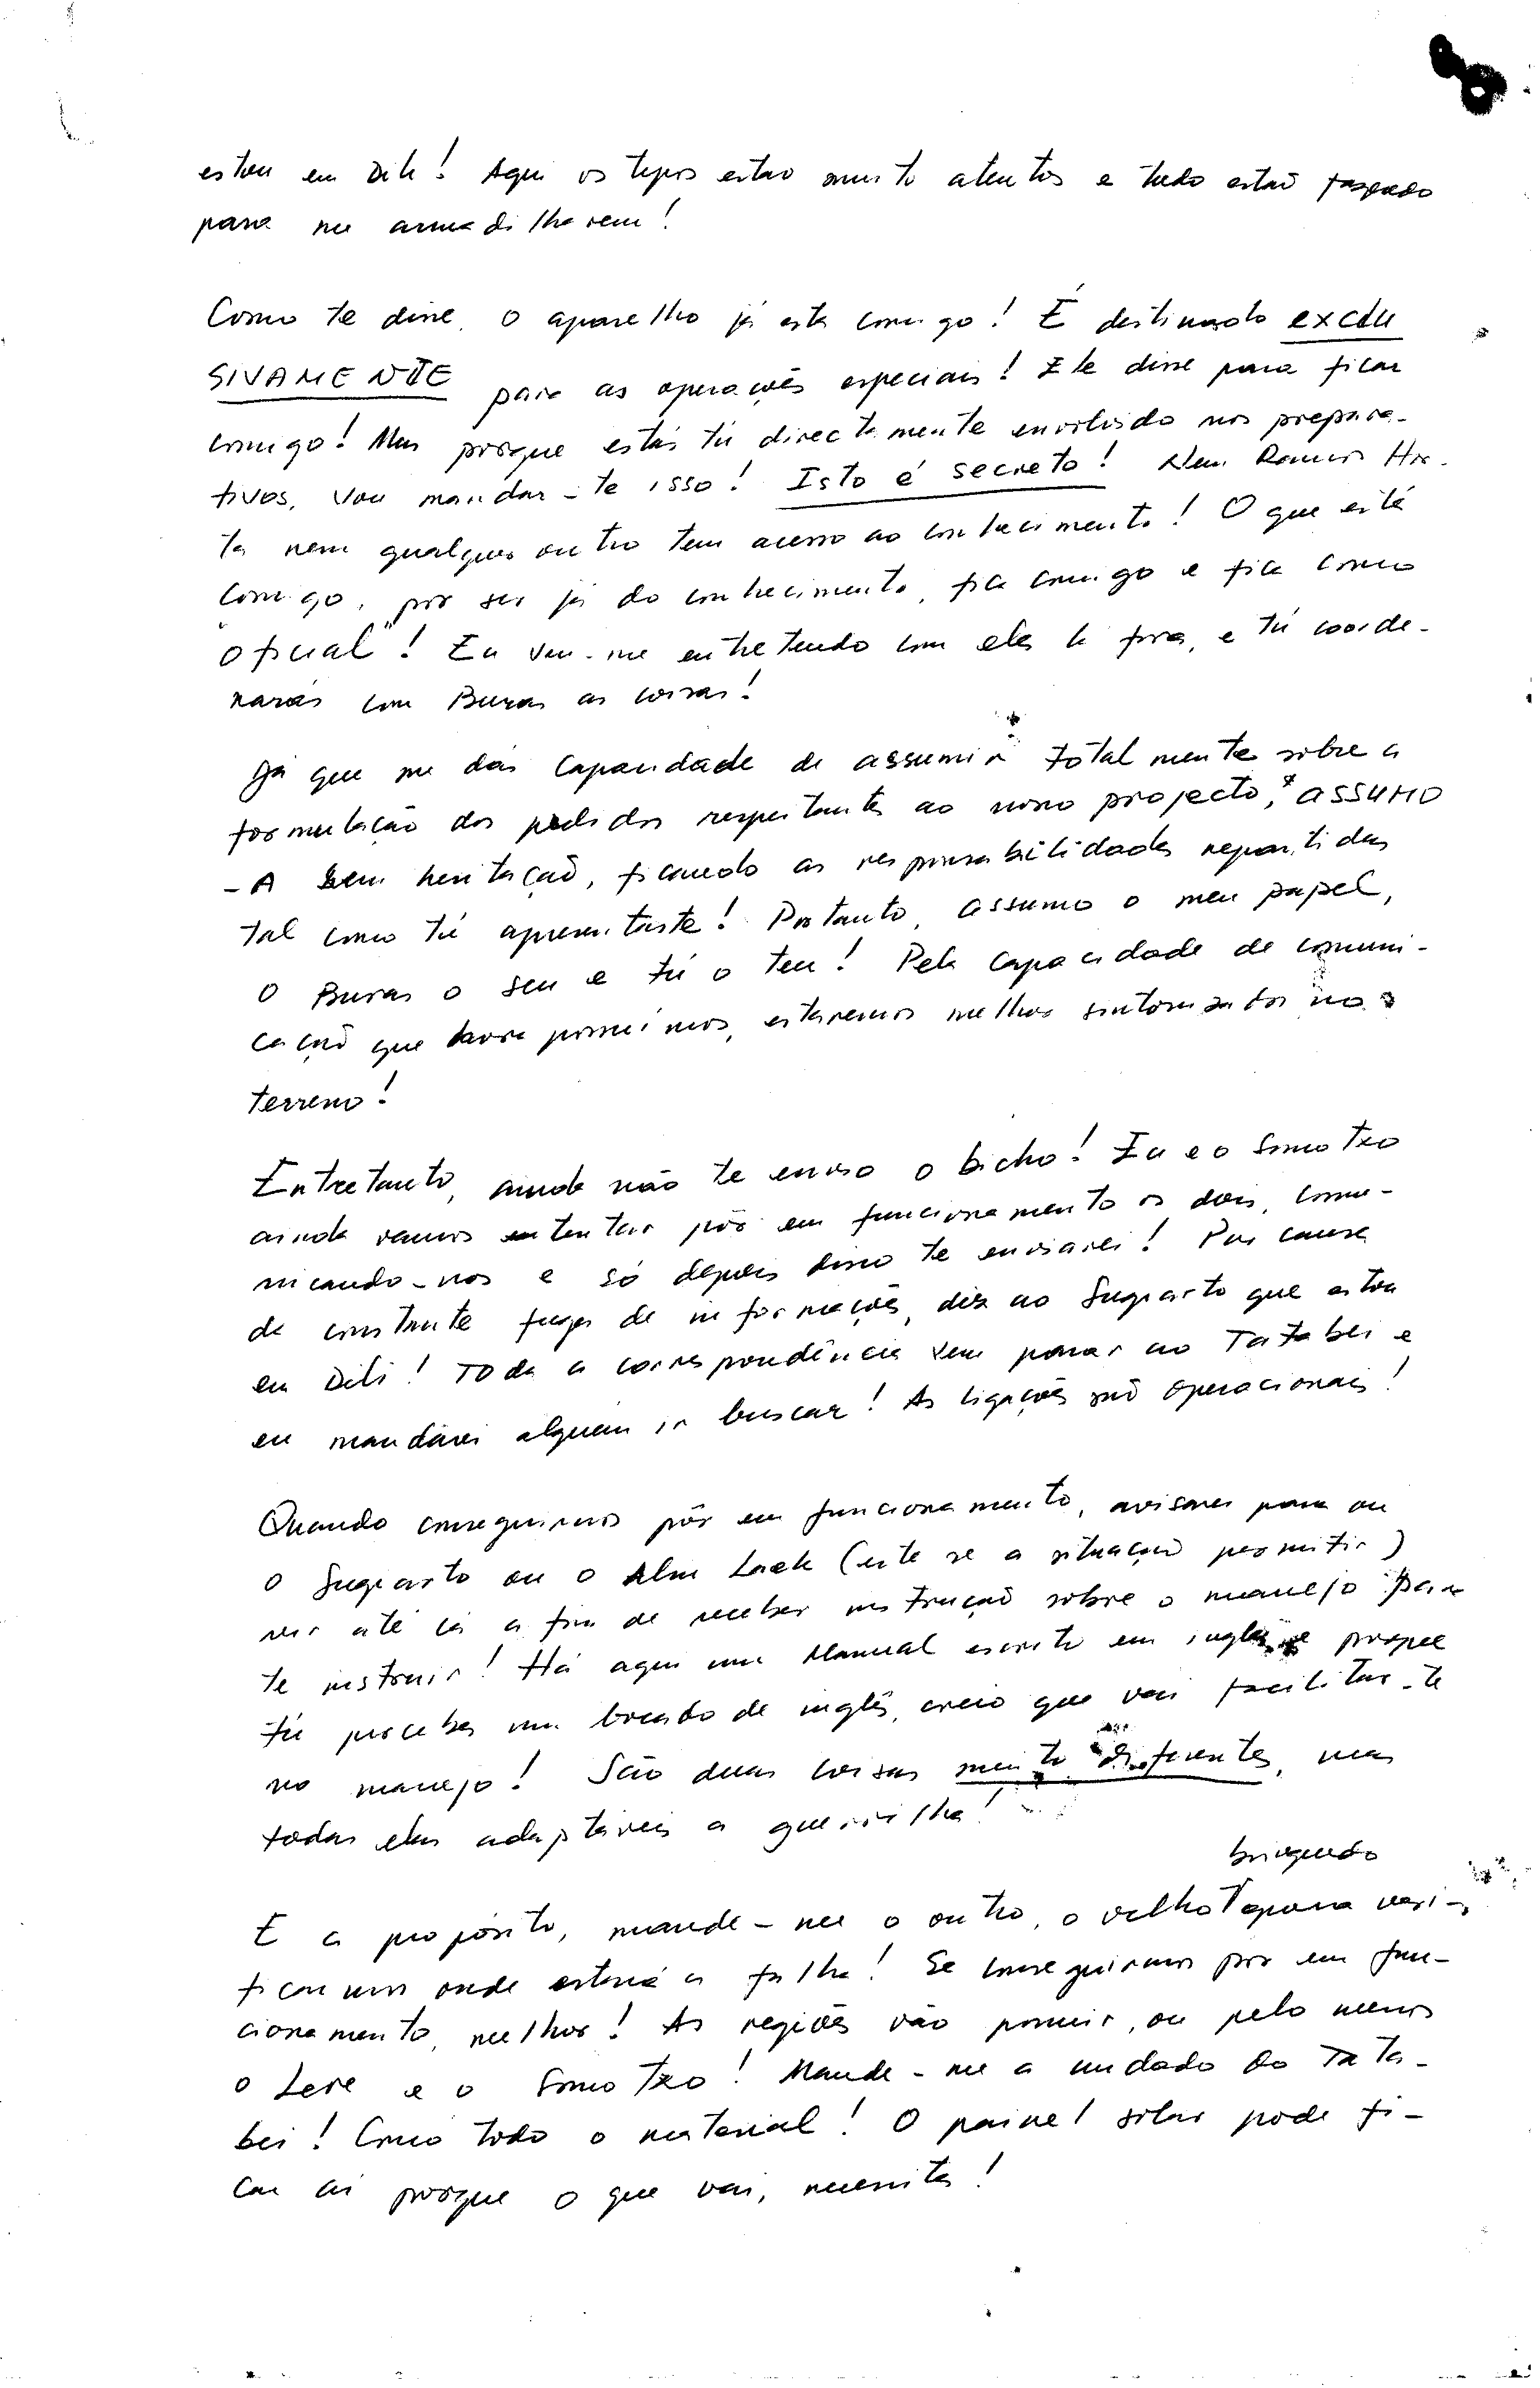 estou em Dili! Aqui os tipos estão muito atentos e tudo estão fazendo
para me armadilharem!
Como te disse, o aparelho já está comigo! É destinado exclu
SIVAMENTE para as operações especiais! Ele disse para ficar
comigo! Mas porque estás tú directamente envolvido nos prepara-
tivos, vou mandar-te isso! Isto é secreto! Nem Ramos Hor-
ta nem qualquer outro tem acesso ao conhecimento! O que está
comigo, por ser já do conhecimento, fica comigo e fica como
"oficial"! Eu vou-me entretendo com eles lá fora, e tú coorde-
narás com Buras as coisas!
Já que me dás capacidade de assumir totalmente sobre a
formulação dos pedidos respeitantes ao nosso projecto, ASSUMO
-A sem hesitação, ficando as responsabilidades repartidas
tal como tú apresentaste! Portanto, assumo o meu papel,
o Buras o seu e tú o teu! Pela capacidade de comuni-
cação que hora possuímos, estaremos melhor sintonizados no
terreno!
Entretanto, ainda não te envio o bicho! Eu e o Somotxo
ainda vamos tentar pôr em funcionamento os dois, comu-
nicando-nos e só depois disso te enviarei! Por causa
da constante fuga de informações, diz ao Sugiarto que estou
em Dili! Toda a correspondência vem parar ao Tatabei e
eu mandarei alguém ir buscar! As ligações são operacionais!
Quando conseguirmos pôr em funcionamento, avisarei para ou
o Sugiarto ou o Alou Laek (este se a situação permitir)
vir até cá a fim de receber instrução sobre o manejo para
te instruir! Há aqui um Manual escrito em inglês e porque
tú percebes um bocado de inglês, creio que vai facilitar-te
no manejo! São duas coisas muito diferentes, mas
todas elas adaptáveis a guerrilha!
brinquedo
E a propósito, mande-me o outro, o velho para veri-
ficarmos onde estará a falha! Se conseguirmos pôr em fun-
cionamento, melhor! As regiões vão possuir, ou pelo menos
o Lere e o Somotxo! Mande-me a cuidado do Tata-
bei! Como todo o material! O painel solar pode fi-
car aí porque o que vai, necessita!